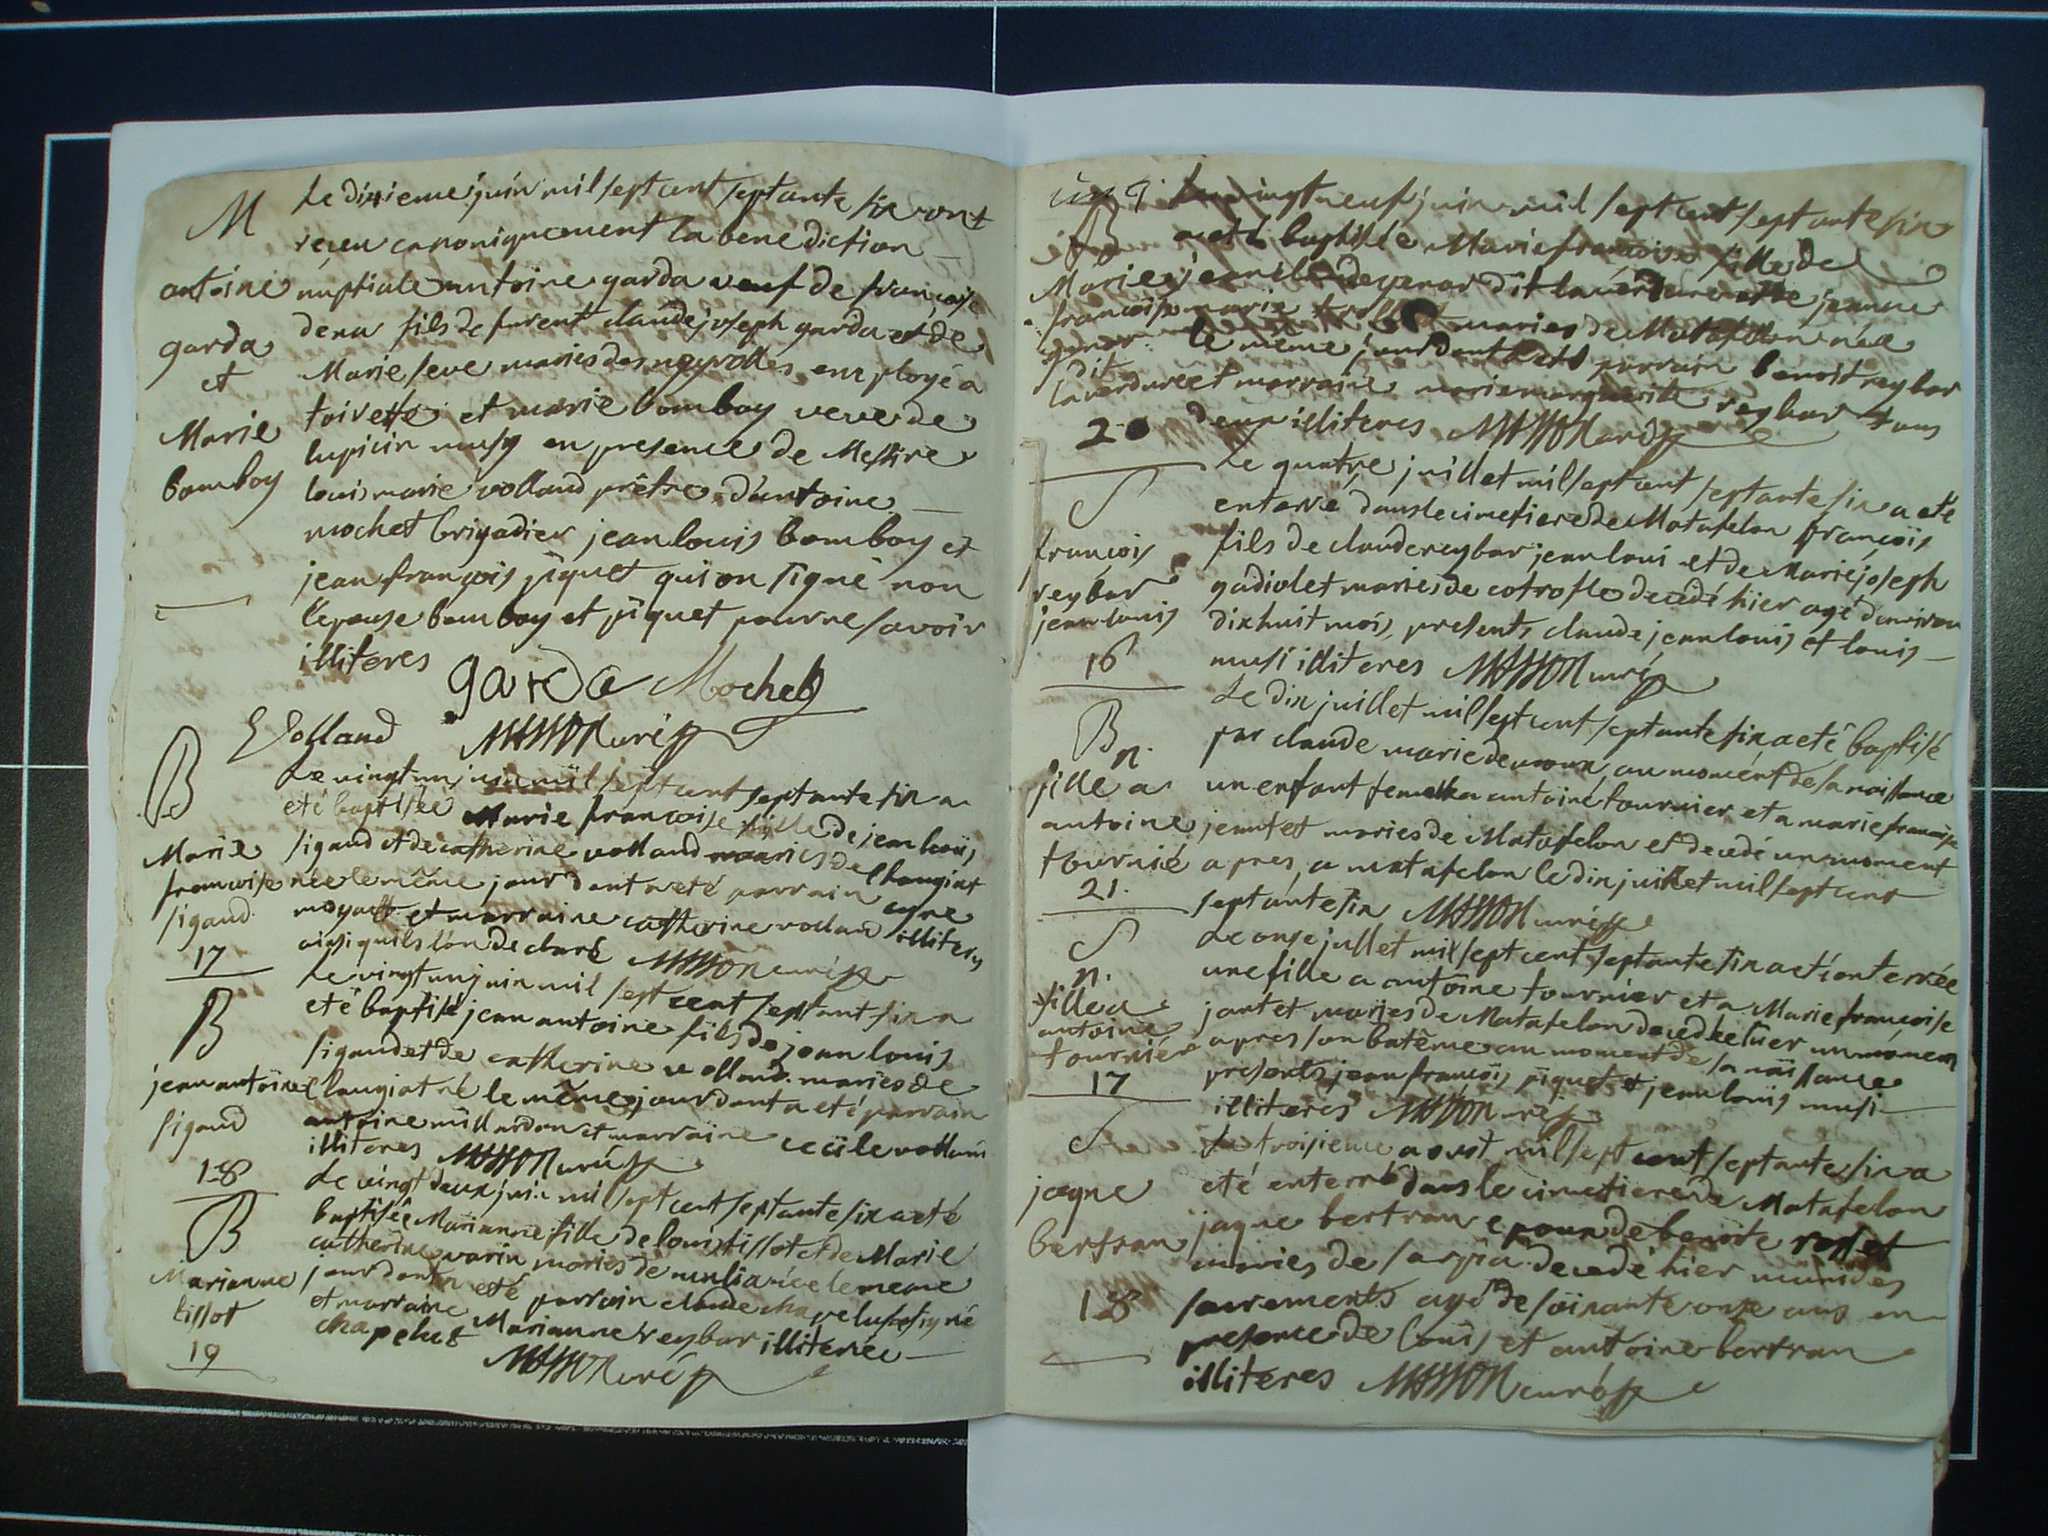 M
Le dixieme juin mil sept cent septante six ont
reçeu canoniquement la benediction
antoine
nuptiale antoine garda veuf de françoise
garda
fils de furent claude joseph garda et de
et
Marie seve maries des neyrolles employé a
Marie
toirette et marie bomboy veve de
bomboy
lupicin musy en presence de Messire
louis marie volland prêtre d'antoine
mochet brigadier jean louis bomboy et
jean françois piquet qui on signé non
l'epouse bomboy et piquet pour ne savoir
illiteres
garda Mochet
Volland MASSON curé
B
Le vingt un juin mil sept cent septante six a
eté baptisée Marie françoise fille de jean louis
Marie
sigaud et de catherine volland maries de l'haugiat
francoise
née le même jour dont a eté parrain
sigaud
et marraine catherine volland illiteres
17
ainsi quils l'on declaré MASSON curé
B
Le vingt un juin mil sept cent septant six a
eté baptisé jean antoine fils de jean louis
sigaud et de catherine volland maries de
jean antoine
l'augiat né le même jour dont a eté parrain
sigaud
antoine millardon et marraine cecile volland
18
illiteres MASSON curé
B
Le vingt deux juin mil sept cent septante six a eté
baptisée Marianne fille de louis tissot et de Marie
catherine varin maries de née le meme
Marianne
jour dont a eté parrain claude chapelu signé
tissot
et marraine Marianne reybar illiterée
chapelut
19
MASSON curé
B
Le vingt neuf juin mil sept cent septante six
a eté baptisée Marie francoise fille de
Marie
jean claude genar dit laverdure et de jeanne
françoise
marie maries de Matafelon née
genar
le même jour dont a eté parrain benoit reybar
dit
laverdure
et marraine marie marguerite reybar tous
20
deux illiteres MASSON curé
S
Le quatre juillet mil sept cent septante six a eté
enterré dans le cimetiere de Matafelon françois
françois
fils de claude reybar jean loui et de Marie joseph
reybar
gadiolet maries de cotrofle decedé hier agé d'environ
jean louis
dix huit mois, presents claude jean louis et louis
16
musi illiteres MASSON curé
B
Le dix juillet mil sept cent septante six a eté baptisé
n.
par claude marie au moment de sa naissance
fille a
un enfant femelle a antoine tournier et a marie françoise
antoine
jantet maries de Matafelon et decedé un moment
tournié
apres, a matafelon le dix juillet mil sept cent
21.
septante six MASSON curé
S
Le onze jullet mil sept cent septante six a eté enterrée
n.
une fille a antoine tournier et a Marie françoise
fille a
jantet maries de Matafelon decedée hier un moment
antoine
apres son batême au moment de sa naissance
tournier
presents jean françois piquet et jean louis musi
17
illiteres MASSON curé
S
Le troisieme aoust mil sept cent septante six a
eté enterré dans le cimetiere de Matafelon
jaque
jaque bertran epoux de benoite rosset
bertran
maries de decedé hier muni des
18
sacrements agé de soixante onze ans en
presence de louis et antoine bertran
illiteres MASSON curé